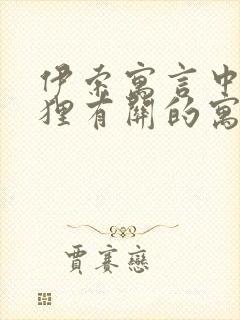 伊索寓言中
狸有關的寓
賈賽戀